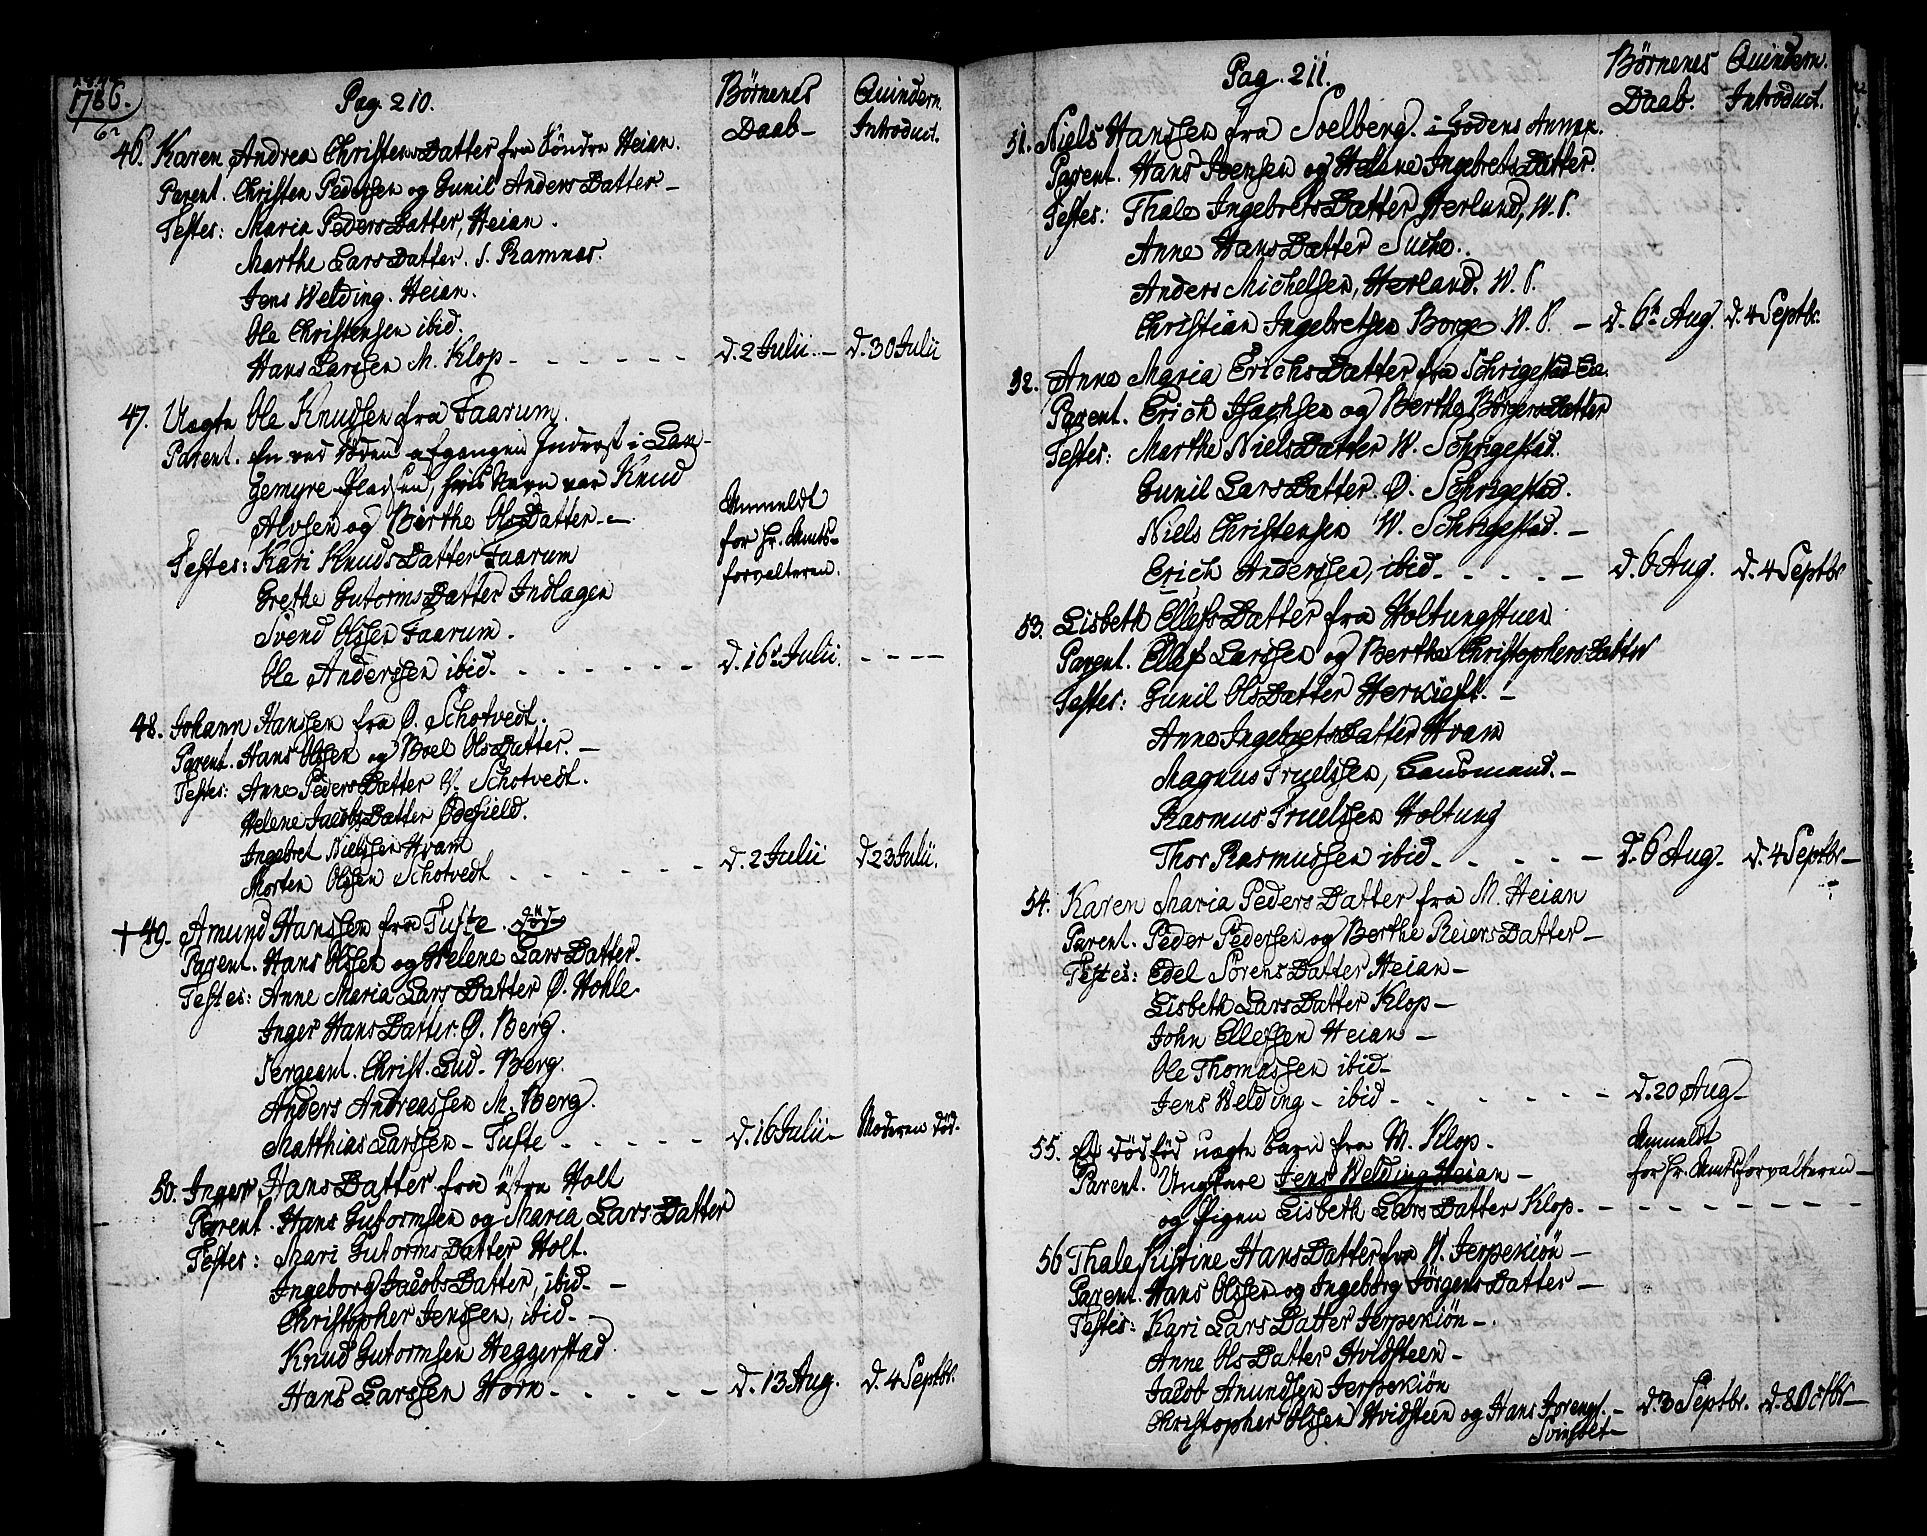 1786.
Pag. 210.
Børnenes Daab-
Quindern. Introduct.
46. Karen Andrea ChristensDatter fra Søndre Heian.
Parent. Christen Pedersen og Gunil AndersDatter -
Testes: Maria PedersDatter, Heian.
Marthe LarsDatter. S. Ramnas.
Jens Welding. Heian.
Ole Christensen ibid.
Hans Larssen M. Klop - - - - - - d. 2 Julii. - d. 30 Julii
47. Uægte Ole Knudsen fra Faarum.
Parent. En ved Døden afgangen Inderst i Lan-
gemyre Pladsen, hvis Navn var Knud
Alvsen og Birthe OlsDatter. -
Anmeldt
for Hr. Amts-
forvalteren.
Testes: Kari KnudsDatter Faarum
Grethe GutormsDatter Indlagen
Svend Olssen Faarum.
Ole Anderssen ibid. - - - - - - d. 16 Julii. - - - -
48. Johann Hanssen fra Ø. Schotvedt.
Parent. Hans Olssen og Boel OlsDatter. -
Testes: Anne PedersDatter Schotvedt.
Helene JacobsDatter Ødefield.
Ingebret Nielssen Hvam
Morten Olssen Schotvedt - - - - - - d. 2 Julii d 23 Julii.
† 49. Amund Hanssen fra Tufte. død
Parent. Hans Olssen og Helene LarsDatter.
Testes: Anne Maria LarsDatter Ø. Hohle.
Inger HansDatter. Ø. Berg.
Sergeant. Christ. Lud. Berg.
Anders Andreassen M. Berg.
Matthias Larssen - Tufte - - - - - d. 16 Julii - Moderen død.
50. Inger HansDatter fra østre Holt
Parent. Hans Gutormsen og Maria LarsDatter
Testes: Mari GutormsDatter Holt.
Ingeborg JacobsDatter, ibid. -
Christopher Jenssen, ibid. -
Knud Gutormsen Heggerstad
Hans Larssen Horn - - - - - - d. 13 Aug. d. 4 Septbr.
Pag. 211.
Børnenes Daab.
Quindern. Introduct.
51. Niels Hanssen fra Soelberg. i Godens Annex.
Parent. Hans Svensen og Helene IngebretsDatter.
Testes: Thale IngebretsDatter Herland, W. S.
Anne HansDatter Suche.
Anders Michelsen, Herland. W. S.
Christian Ingebretsen Borge W. S. - d. 6t Aug. d. 4 Septbr.
52. Anne Maria ErichsDatter fra Schrigestad
Parent. Erich Isachsen og Berthe BørgersDatter
Testes: Marthe NielsDatter W. Schrigestad.
Gunil LarsDatter. Ø. Schrigestad.
Niels Christensen W. Schrigestad. -
Erich Anderssen, ibid. - - - - d. 6 Aug. d. 4 Septbr
53. Lisbeth EllefsDatter fra Holtungstuen
Parent. Ellef Larssen og Berthe ChristophersDatter
Testes: Gunil OlsDatter Herkieft. -
Anne IngebretsDatter Hvam
Magnus Truelssen, Lensmand. -
Rasmus Truelssen Holtung
Thor Rasmussen ibid. - - - - - d. 6 Aug. d. 4 Septbr -
54. Karen Maria PedersDatter fra M. Heian
Parent. Peder Pedersen og Berthe ReiersDatter -
Testes: Edel SørensDatter Heian -
Lisbeth LarsDatter Klop -
John Ellefsen Heian -
Ole Thomassen ibid -
Jens Welding - ibid - - - - - - - d. 20 Aug -
55. Et dødfød uægte barn fra W. Klop -
Parent. Ungkare Jens Welding Heian -
og Pigen Lisbeth LarsDatter Klop. - - - - - - - - -
Anmeldt
for Hr. Amtsforvalteren -
56 Thale Kistine HansDatter fra N. Jerpekiøn -
Parent. Hans Olssen og Ingeborg JørgensDatter -
Testes: Kari LarsDatter Jerpekiøn -
Anne OlsDatter Hvidsteen -
Jacob Anundsen Jerpekiøn
Christopher Olssen Hvidsteen og Hans - d. 3 Septbr. d. 8 Octbr -